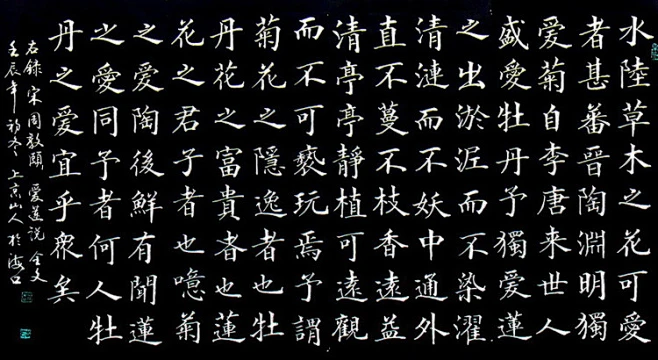 水陸草木之花可愛
者甚蕃晉陶淵明獨
愛菊自李唐来世人
盛愛牡丹予獨愛蓮
之出淤泥而不染濯
清漣而不妖中通外
直不蔓不枝香遠益
清亭亭靜植可遠觀
而不可褻玩焉予謂
菊花之隱逸者也牡
丹花之富貴者也蓮
花之君子者也噫菊
之愛陶後鮮有聞蓮
之愛同予者何人牡
丹之愛宜乎衆矣
右錄宋周敦頤愛蓮說全文
壬辰年初冬上京山人於海口